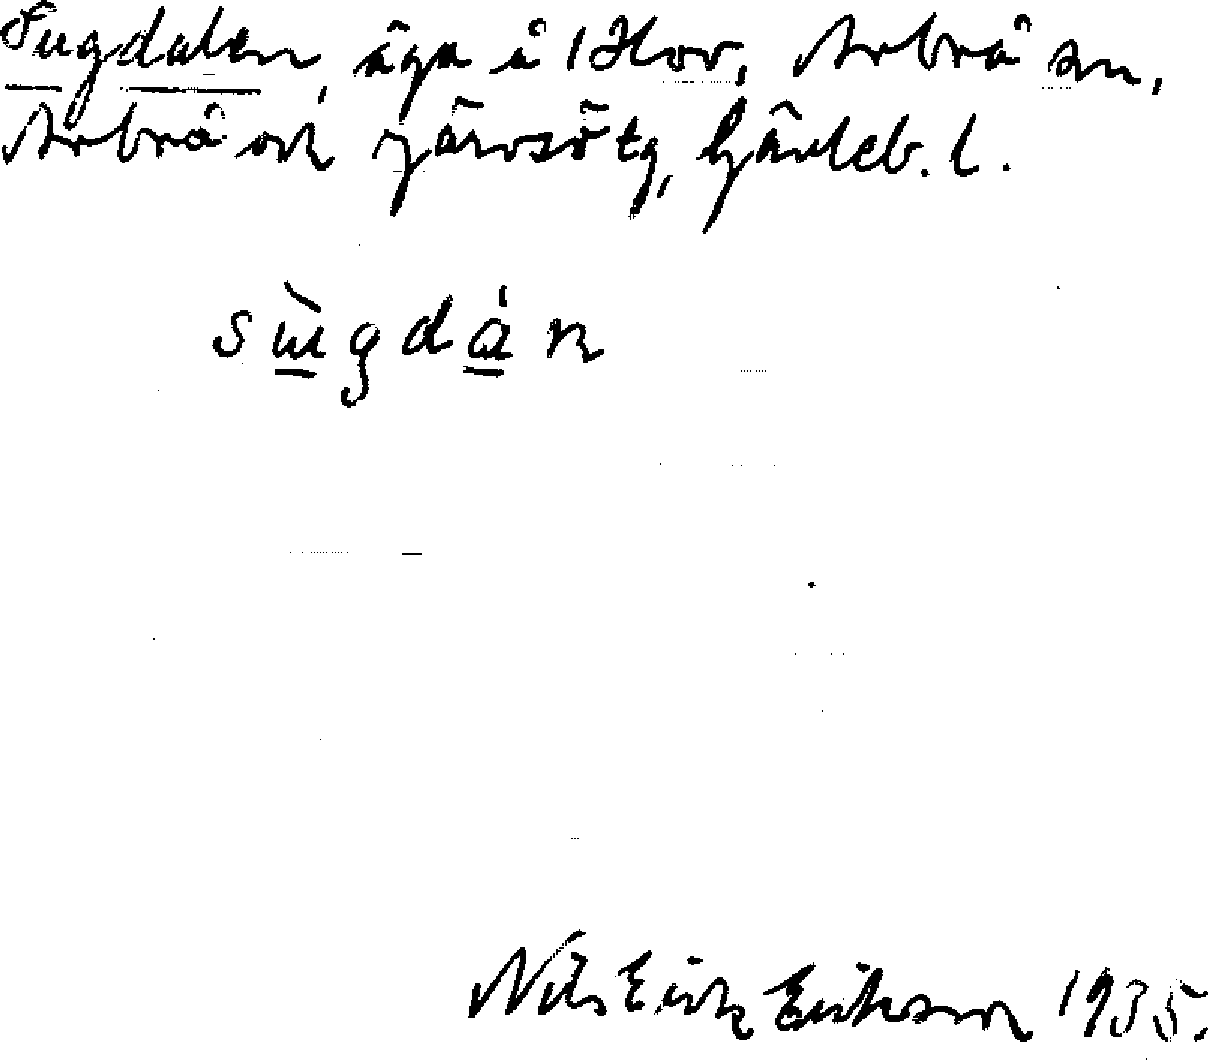 Sugdalen, äga å 1 Hov, Arbrå sn,
Arbrå och Järvsö tg, Gävleb. l.
sùgdán
Nils Erik Erikson 1935.